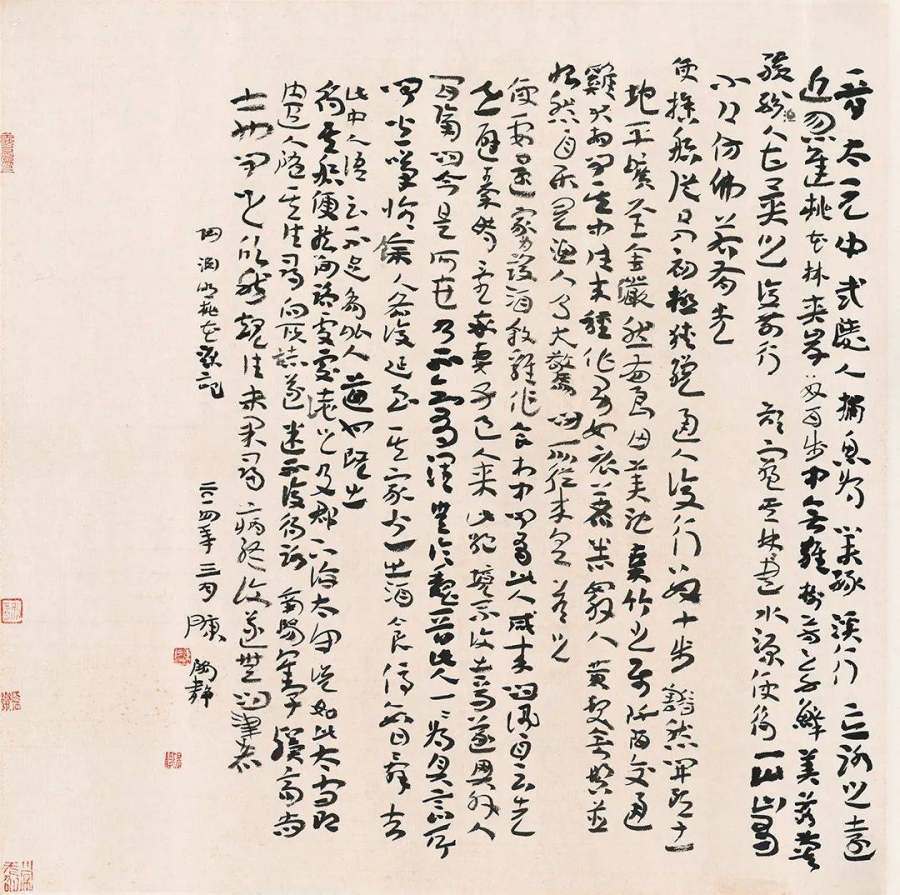 晋太元中武陵人捕魚為業缘溪行忘路之遠
近忽逢桃花林夹岸數百步中無雜樹芳草鮮美落英
缤紛漁人甚異之復前行欲窮其林盡水源便得一山山有
小口仿佛若有光
便捨船從口初極狭纔通人復行數十步豁然開朗土
地平曠屋舍儼然有良田美池桑竹之属阡陌交通
雞犬相聞其中往来種作男女衣著悉人黄髮垂髫並
怡然自乐見漁人乃大驚問所從来具答之
便要還家為設酒殺雞作食村中聞有此人咸来問訊自云先
世避秦時率妻子邑人来此絕境不復出焉遂與外人
間隔問今是何世乃不知有漢無論魏晋此人一一為具言所
聞皆嘆惋餘人各復延至其家皆出酒食停數日辭去
此中人語云不足為外人道也既出
得其船便扶向路處處誌之及郡下詣太守說如此太守即
遣人隨其往尋向所誌遂迷不復得路南陽劉子驥高尚
士也聞之欣然規往未果尋病終後遂無問津者
陶淵明桃花源記
二〇一四年三月